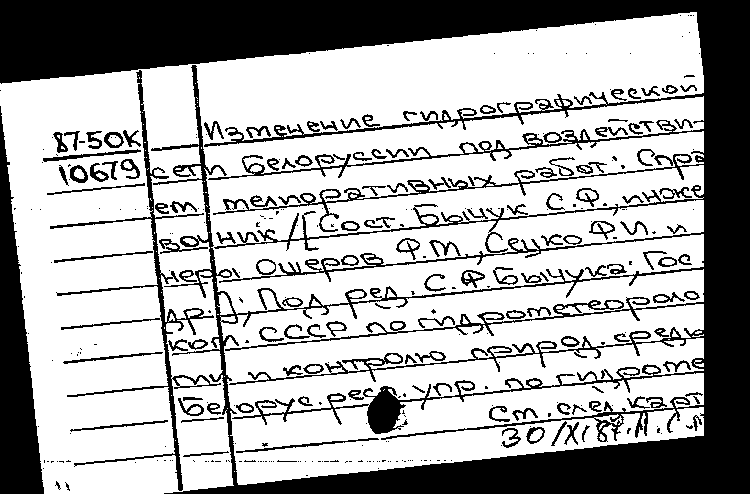 87-50К
10679
Изменение гидрографической
сети Белоруссии под воздействи-
ем мелиоративных работ: Спра
вочник / [Сост. Бычук С.Ф., инже
неры Ошеров Ф.М., Сецко Ф.И. и
др.]; Под ред. С.Ф. Бычука; Гос.
ком. СССР по гидрометеороло
гии и контролю природ. среды
Белорус. респ. упр. по гидроме
См. след. карт
30/XI 87.